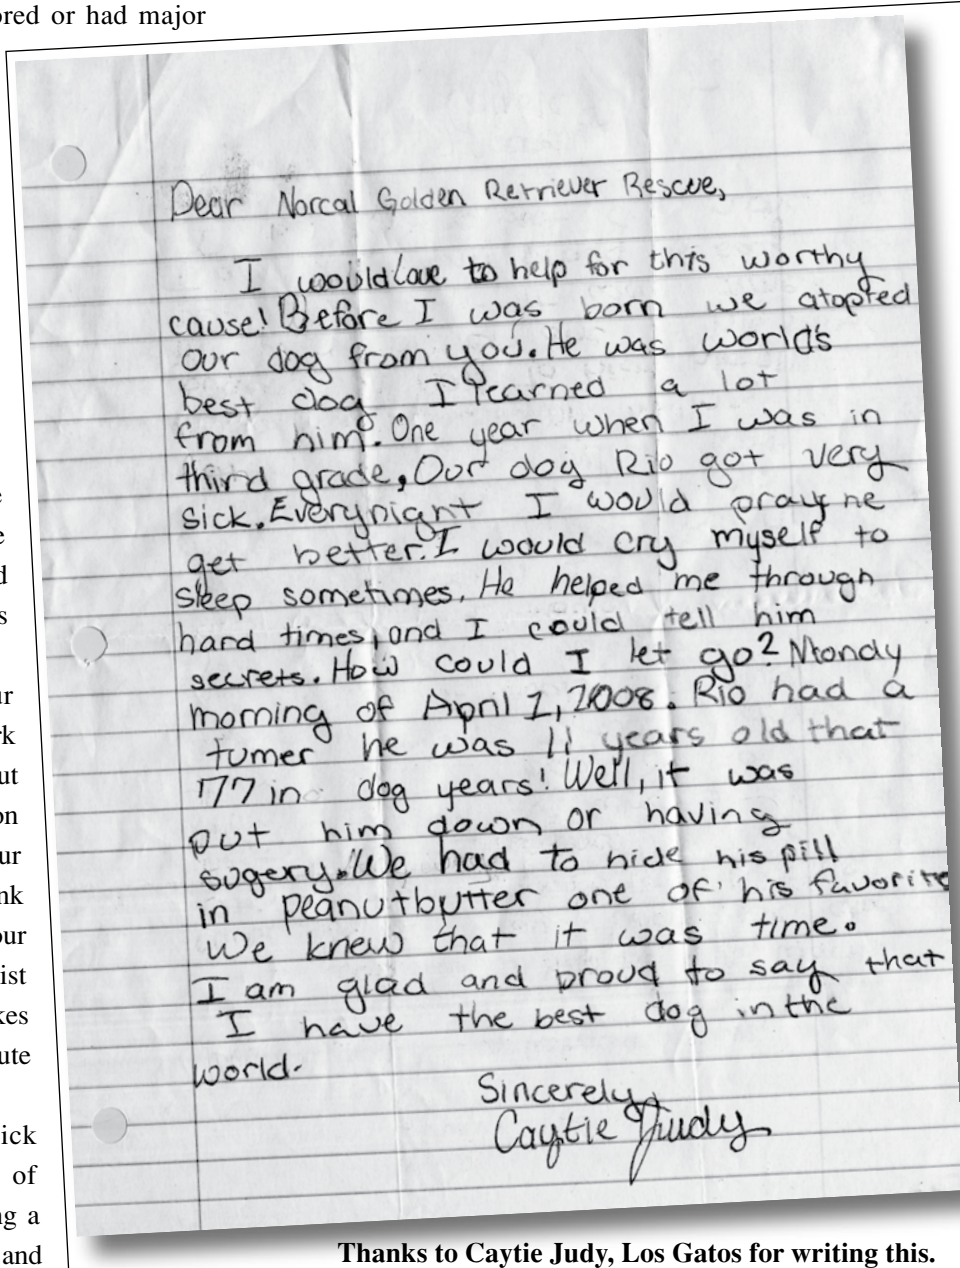 ored or had major
Dear Norcal Golden Retriever Rescue,
I would Love to help for this worthy
cause! Before I was born we atopted
our dog from you. He was world's
best dog I learned a lot
from him. One year when I was in
third grade, Our dog Rio got very
sick. Everynight I would pray he
get better. I would cry myself to
sleep sometimes. He helped me through
hard times, and I could tell him
secrets. How could I let go? Mondy
morning of April 1, 2008. Rio had a
tumer he was 11 years old that
77 in dog years! Well, it was
put him down or having
sugery. We had to hide his pill
in peanutbutter one of his favorite
We knew that it was time.
I am glad and proud to say that
I have the best dog in the
world.
Sincerely,
Caytie Judy
e
e
d
s
ur
rk
ut
on
ur
nk
our
ist
kes
ute
ick
of
ng a
and
Thanks to Caytie Judy, Los Gatos for writing this.